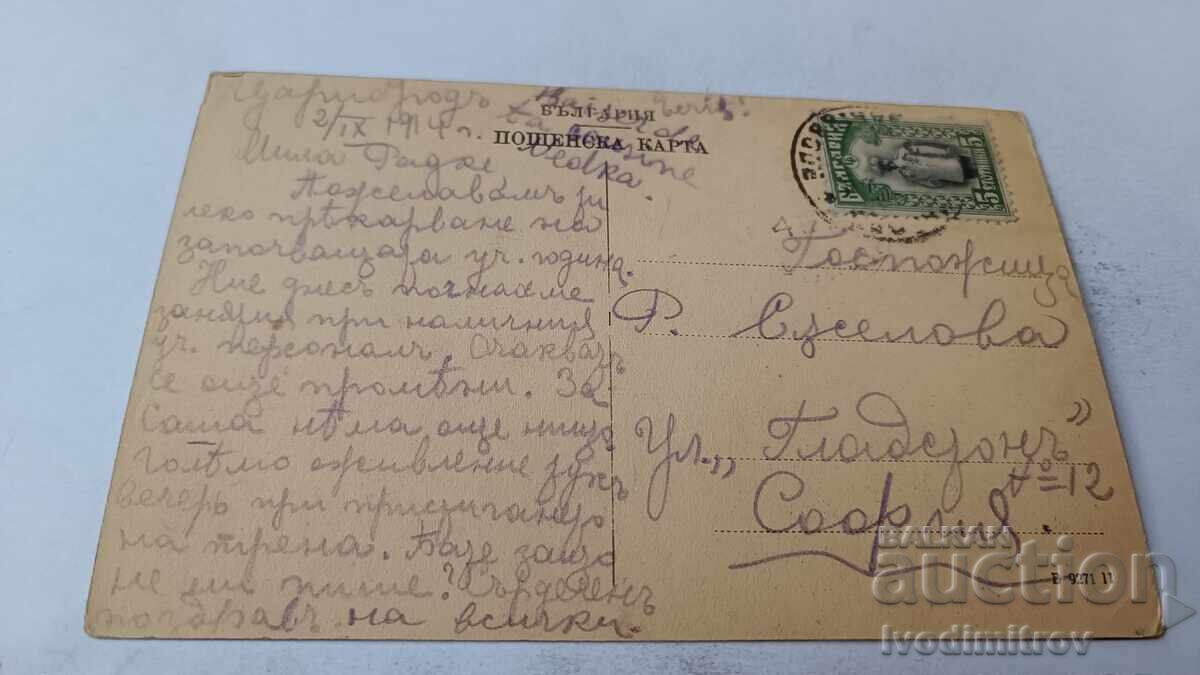 Царибродъ
2/IX 1914 г.
БЪЛГАРИЯ
ПОЩЕНСКА КАРТА
Мила Радке
Пожелавамъ ти
леко прѣкарване на
започващата уч. година.
Ние днесъ почнахме
занятия при наличния
уч. персоналъ. Очакватъ
се още промѣни. За
сега нѣма още нищо
голѣмо оживление тукъ
вечерь при пристигането
на трена. защо
не ми пише? Сърдеченъ
поздравъ на всички.
Госпожица
Р. Веселова
Ул. „Гладстонъ”
№ 12
София.
5 БЪЛГАРИЯ 5
Е-9271 11
BALKAN
auction
Ivodimitrov